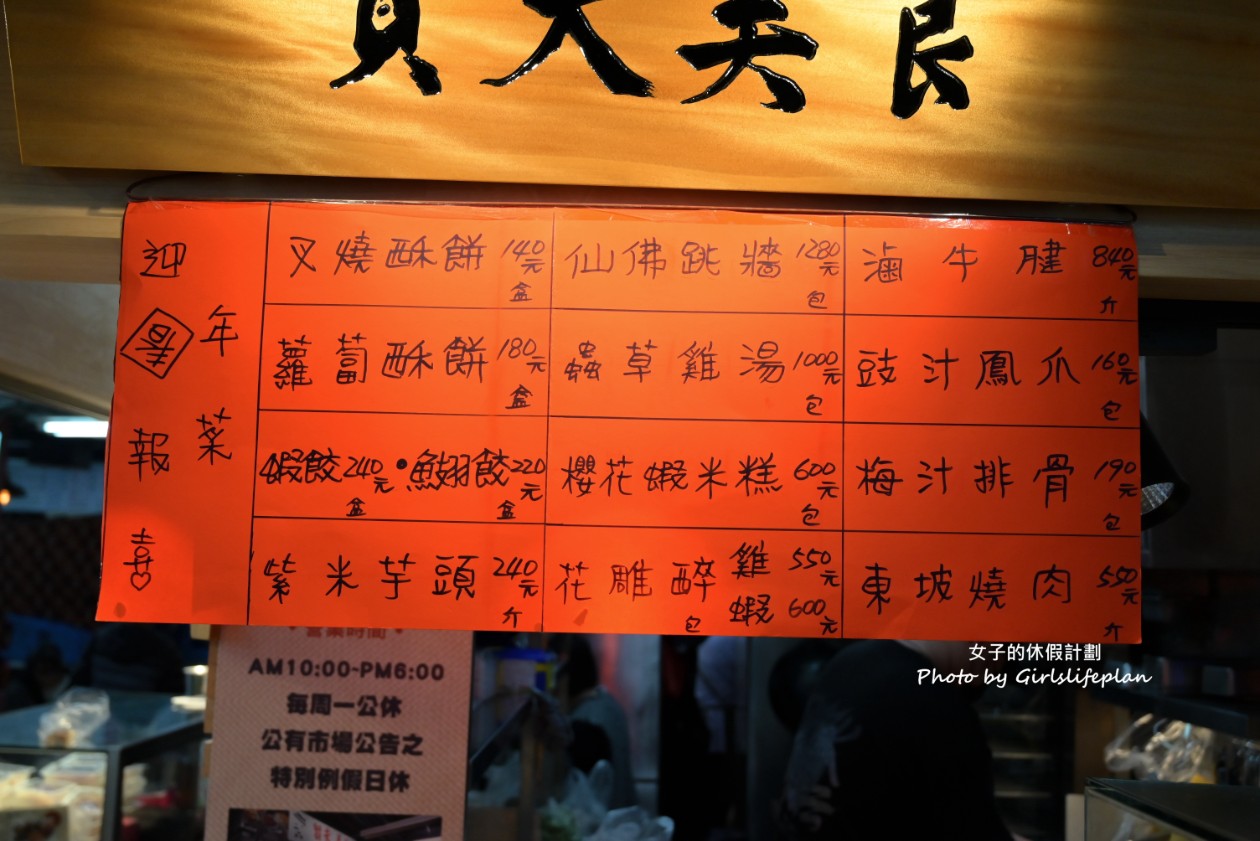 迎春報喜
年菜
叉燒酥餅 140元 盒
仙佛跳牆 1280元 包
滷牛腱 840元 斤
蘿蔔酥餅 180元 盒
蟲草雞湯 1000元 包
豉汁鳳爪 160元 包
蝦餃 240元 盒 • 魚翅餃 220元 盒
櫻花蝦米糕 600元 包
梅汁排骨 190元 包
紫米芋頭 240元 斤
花雕醉 雞 550元 蝦 600元 包
東坡燒肉 550元 斤
營業時間
AM10:00-PM6:00
每周一公休
公有市場公告之
特別例假日休
女子的休假計劃
Photo by Girlslifeplan